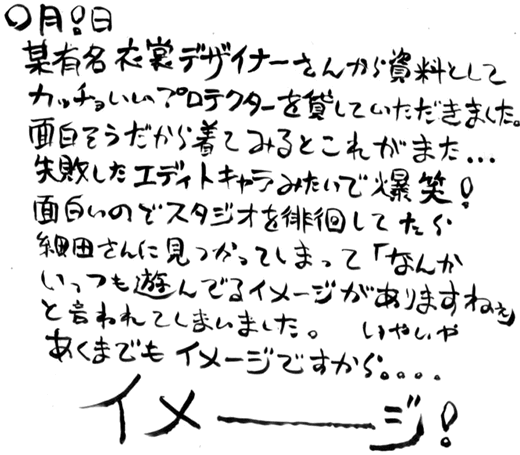 ○月!日
某有名衣裳デザイナーさんから資料として
カッチョいいプロテクターを貸していただきました。
面白そうだから着てみるとこれがまた...
失敗したエディトキャラみたいで爆笑!
面白いのでスタジオを徘徊してたら
細田さんに見つかってしまって「なんか
いっつも遊んでるイメージがありますねぇ」
と言われてしまいました。 いやいや
あくまでもイメージですから。。。。
イメ――ジ!